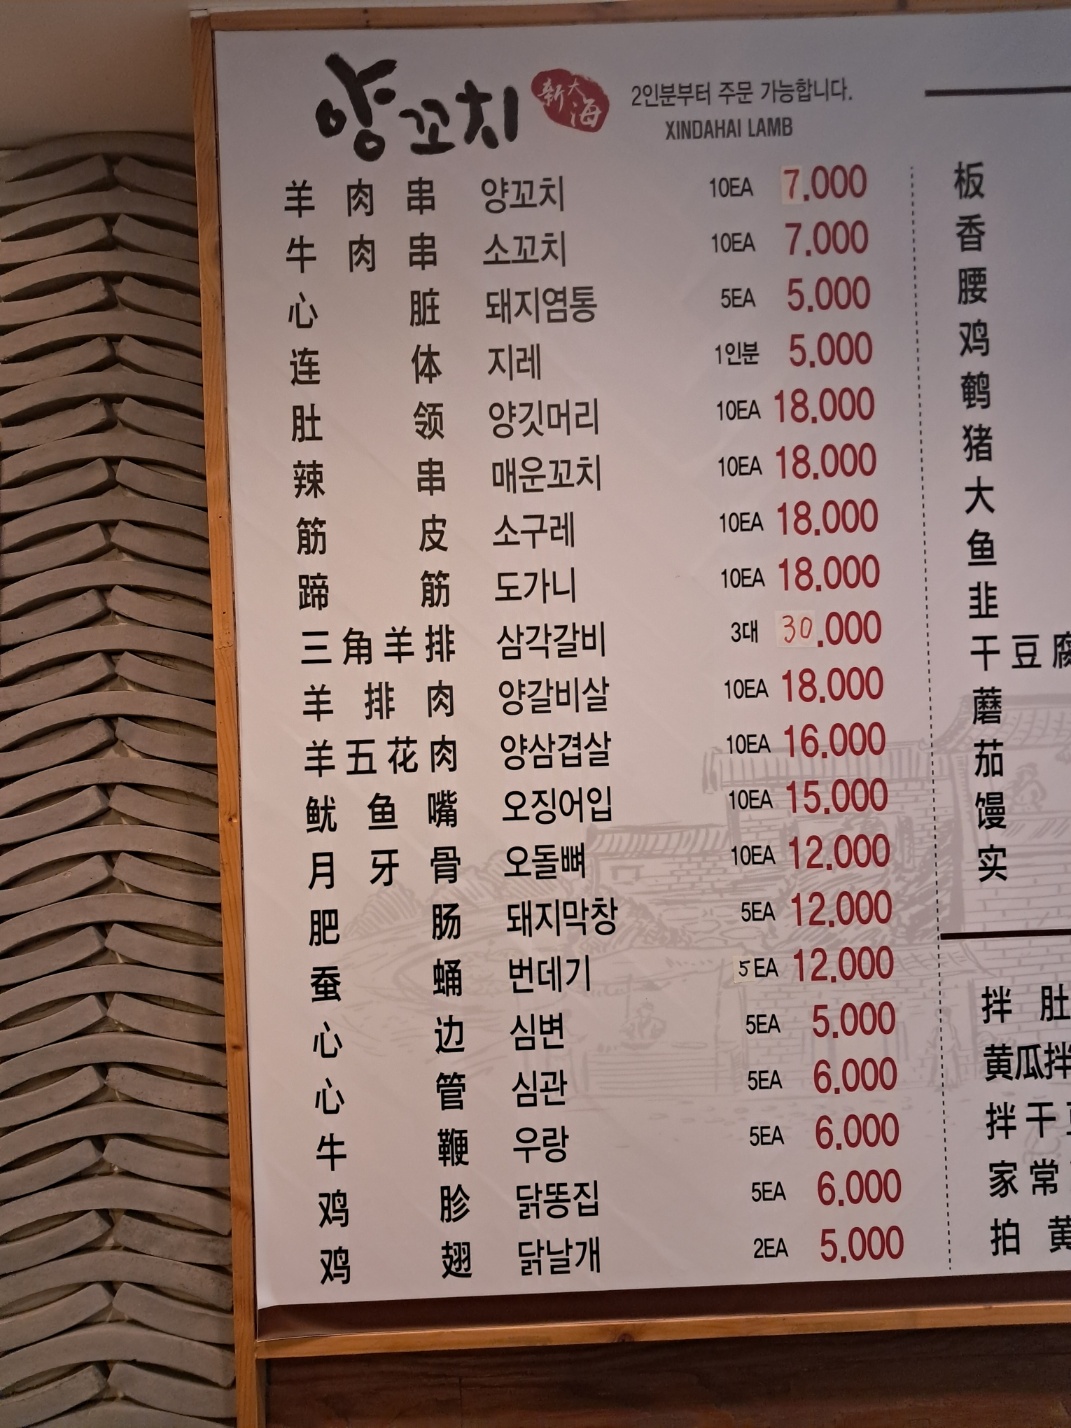 양꼬치 新大海 2인분부터 주문 가능합니다.
XINDAHAI LAMB
羊肉串 양꼬치 10EA 7.000
牛肉串 소꼬치 10EA 7.000
心脏 돼지염통 5EA 5.000
连体 지레 1인분 5.000
肚领 양깃머리 10EA 18.000
辣串 매운꼬치 10EA 18.000
筋皮 소구레 10EA 18.000
蹄筋 도가니 10EA 18.000
三角羊排 삼각갈비 3대 30.000
羊排肉 양갈비살 10EA 18.000
羊五花肉 양삼겹살 10EA 16.000
鱿鱼嘴 오징어입 10EA 15.000
月牙骨 오돌뼈 10EA 12.000
肥肠 돼지막창 5EA 12.000
蚕蛹 번데기 5EA 12.000
心边 심변 5EA 5.000
心管 심관 5EA 6.000
牛鞭 우랑 5EA 6.000
鸡胗 닭똥집 5EA 6.000
鸡翅 닭날개 2EA 5.000
板
香
腰
鸡
鹌
猪
大
鱼
韭
干豆腐
蘑
茄
馒
实
拌肚
黄瓜拌
拌干豆
家常
拍黄